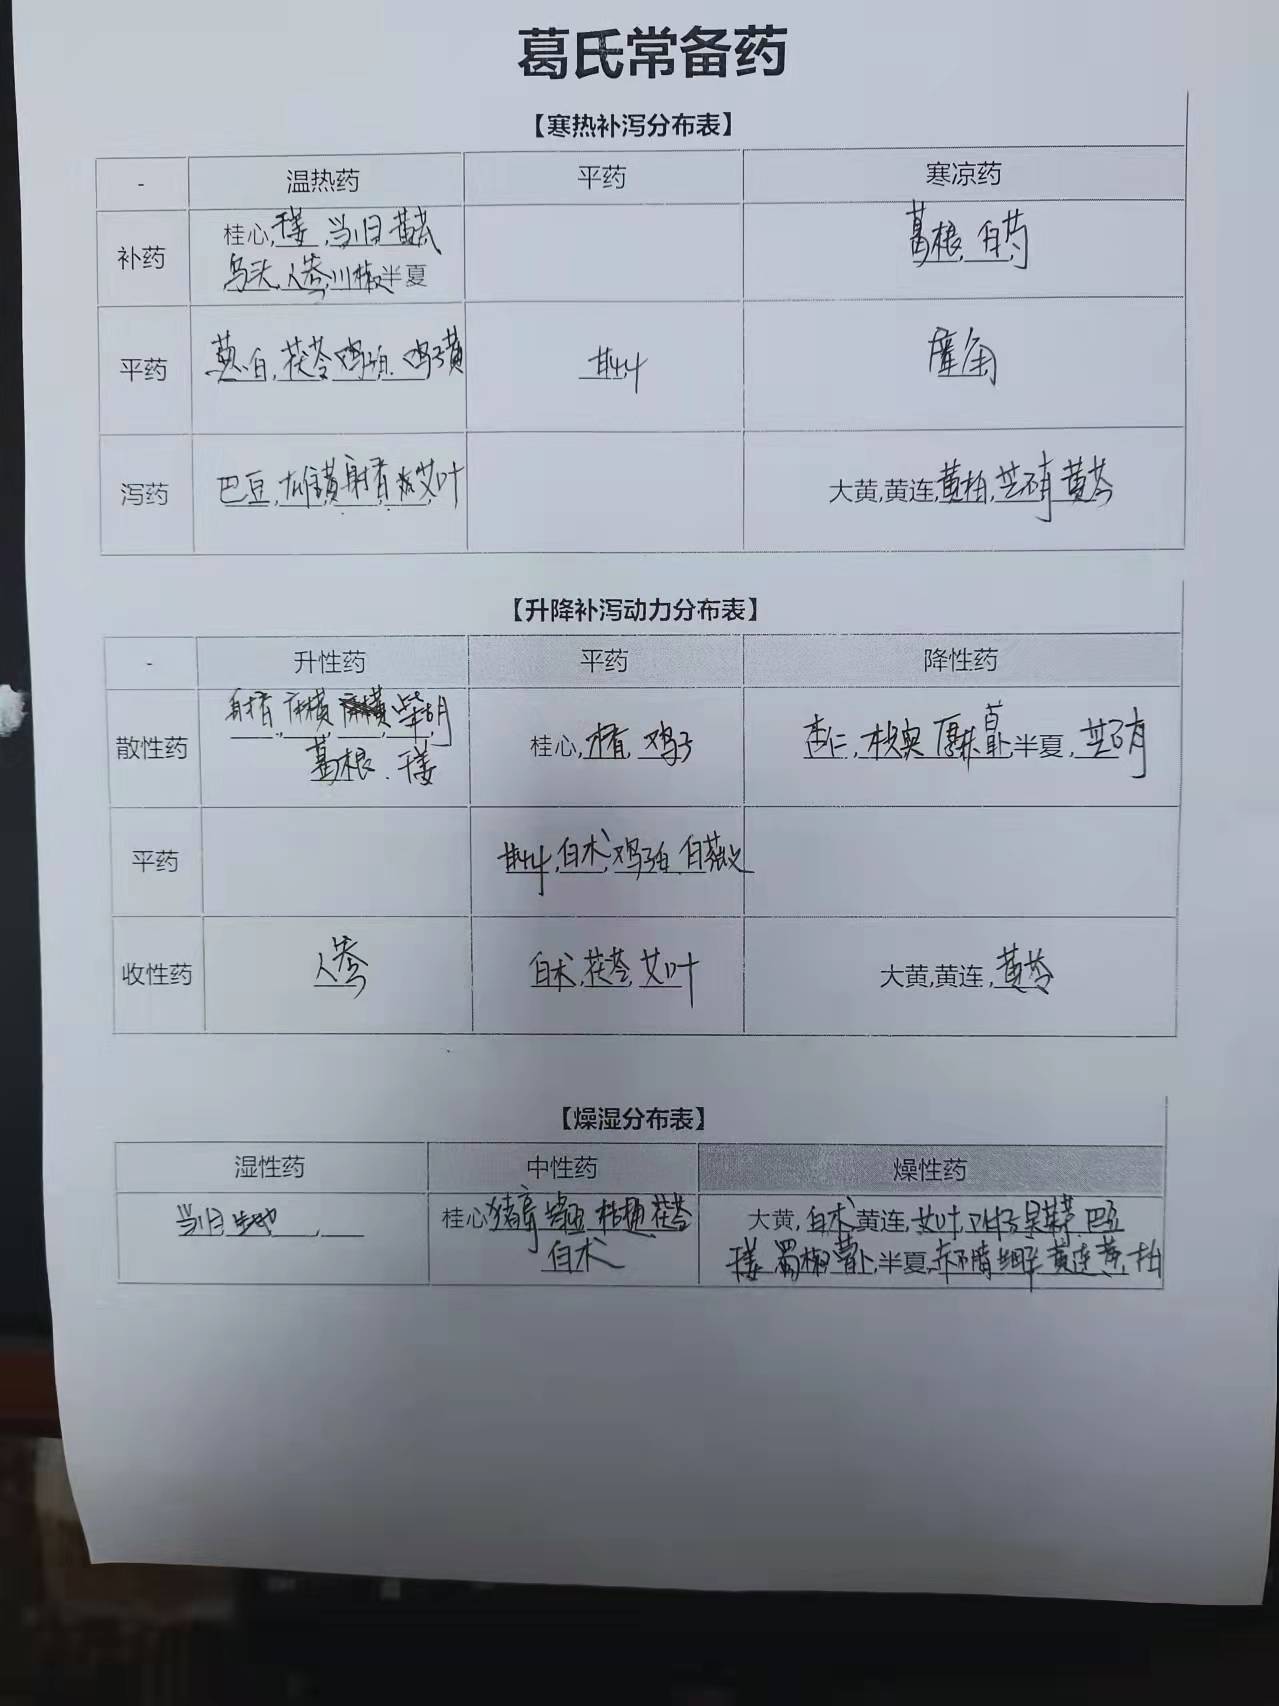 葛氏常备药
【寒热补泻分布表】
- 温热药 平药 寒凉药
补药 桂心, 干姜, 当归 黄芪 葛根, 白芍
乌头, 人参, 川椒 半夏
平药 葱白, 茯苓 鸡子白, 鸡子黄 甘草 犀角
泻药 巴豆, 雄黄 射香 艾叶 大黄,黄连,黄柏, 芒硝 黄芩
【升降补泻动力分布表】
- 升性药 平药 降性药
散性药 射香 麻黄 柴胡 桂心, 鸡子 杏仁, 枳实 厚朴 半夏, 芒硝
葛根, 干姜
平药 甘草, 白术, 鸡子白, 白蔹
收性药 人参 白术, 茯苓, 艾叶 大黄,黄连, 黄芩
【燥湿分布表】
湿性药 中性药 燥性药
当归 生地 桂心 猪膏 桔梗 茯苓 大黄, 白术 黄连, 艾叶, 吴茱萸 巴豆
白术 干姜 蜀椒 半夏, 细辛 黄连 黄柏